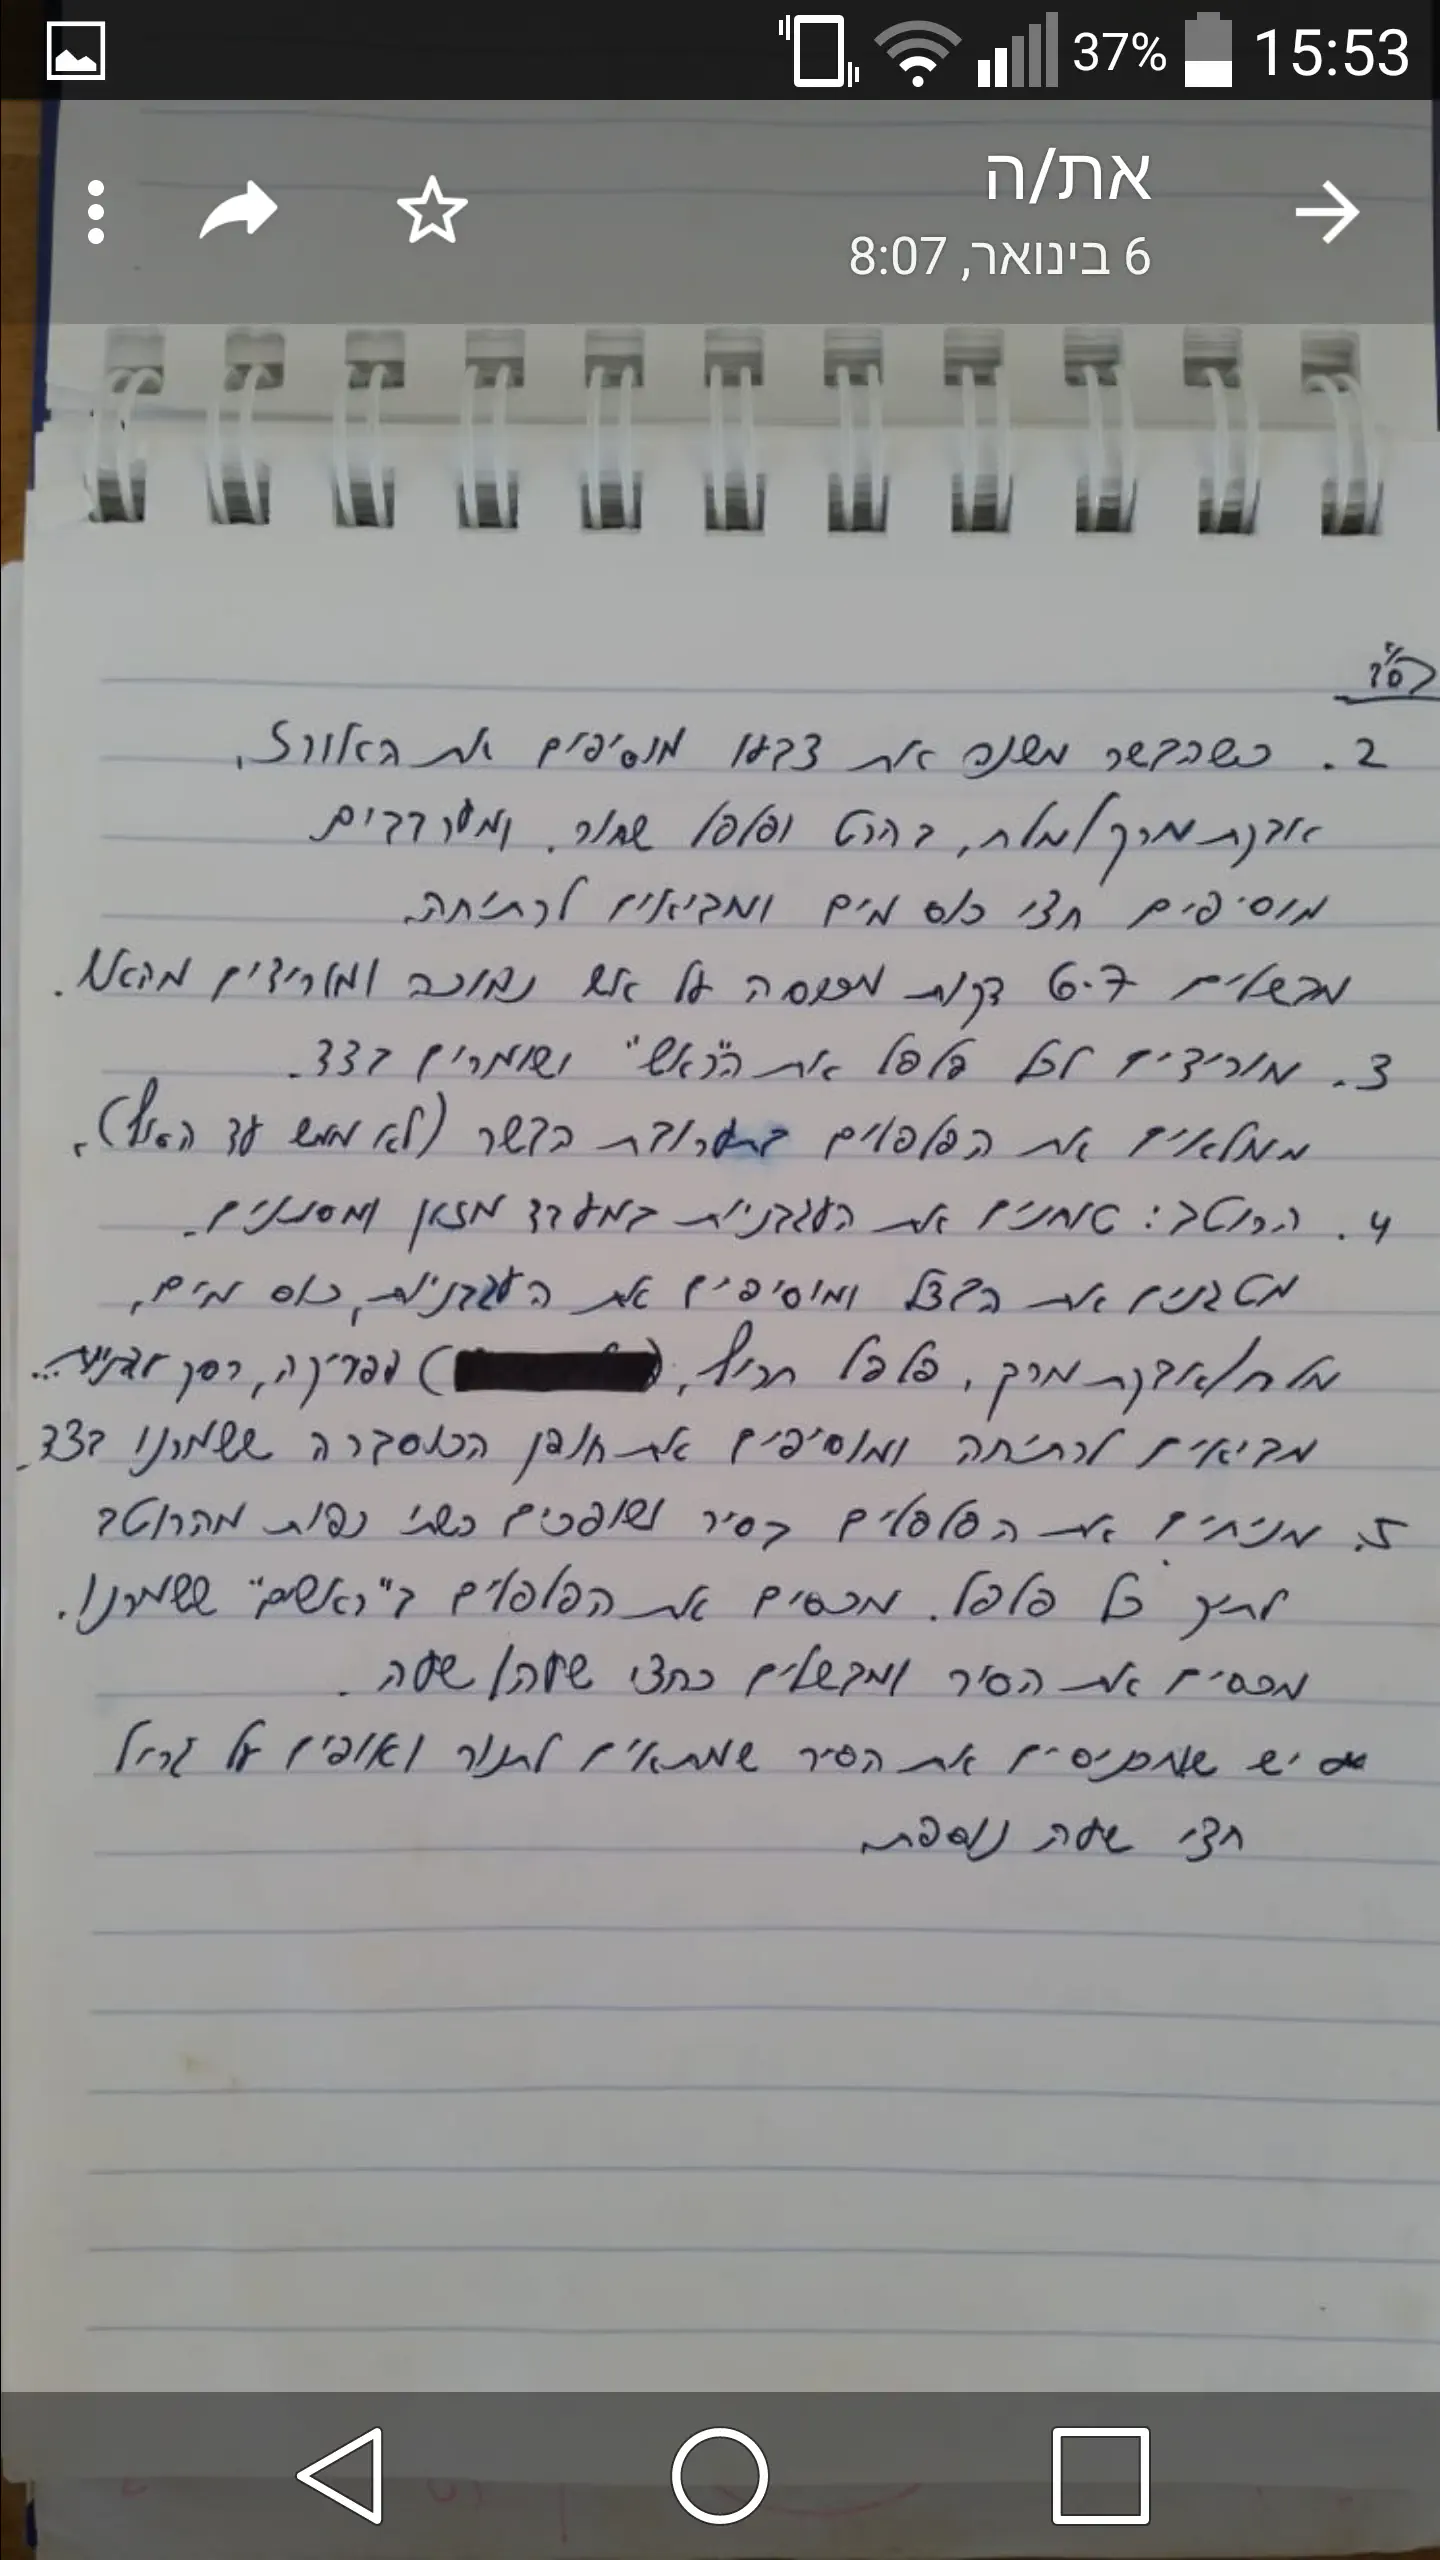 37% 15:53
את/ה
6 בינואר, 8:07
בס"ד
2. כשהבשר משנה את צבעו מוסיפים את האורז,
אבקת מרק/מלח, בהרט ופלפל שחור. ומערבבים
מוסיפים חצי כוס מים ומביאים לרתיחה.
מבשלים 6-7 דקות מכוסה על אש נמוכה ומורידים מהאש.
3. מורידים לכל פלפל את ה"ראש" ושומרים בצד.
ממלאים את הפלפלים בתערובת הבשר (לא ממש עד הסוף).
4. הרוטב: טוחנים את העגבניות במעבד מזון ומסננים.
מטגנים את הבצל ומוסיפים את העגבניות, כוס מים,
מלח/אבקת מרק, פלפל חריף, ( ) פפריקה, רסק עגבניות...
מביאים לרתיחה ומוסיפים את חופן הכוסברה ששמרנו בצד.
5. מניחים את הפלפלים בסיר ושופכים כשתי כפות מהרוטב
לתוך כל פלפל. מכסים את הפלפלים ב"ראשים" ששמרנו.
מכסים את הסיר ומבשלים כחצי שעה/שעה.
יש שמכניסים את הסיר שמתאים לתנור ואופים על גריל
חצי שעה נוספת.